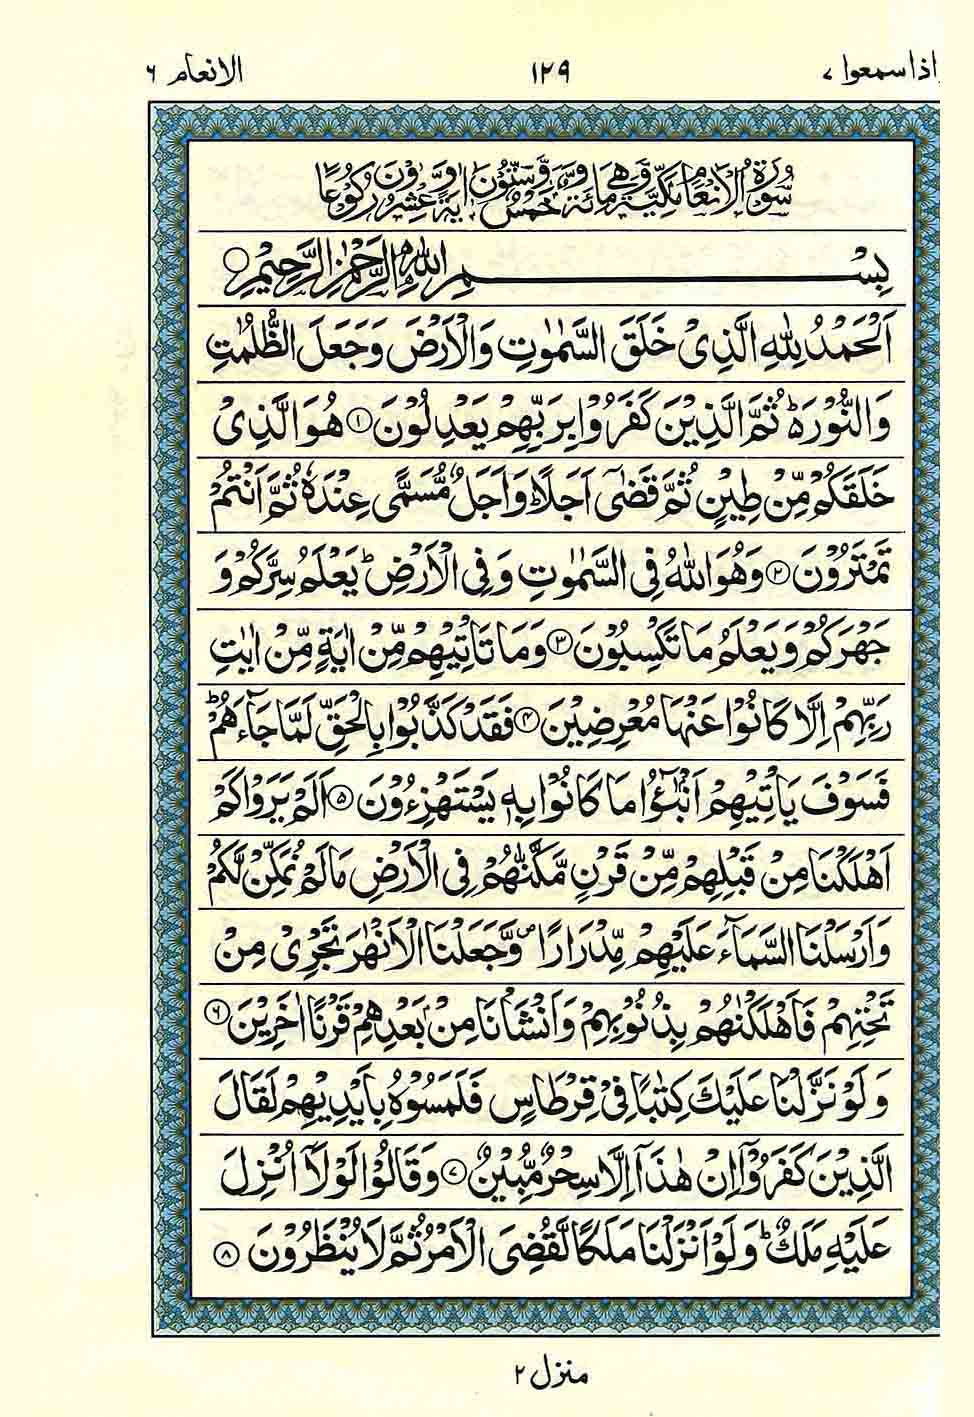 اذا سمعوا ٧
١٢٩
الانعام ٦
سُوْرَةُ الْاَنْعَامِ مَكِّيَّةٌ وَّهِيَ مِائَةٌ وَّخَمْسٌ وَّسِتُّوْنَ اٰيَةً وَّعِشْرُوْنَ رُكُوْعًا
بِسْمِ اللّٰهِ الرَّحْمٰنِ الرَّحِيْمِ ○
اَلْحَمْدُ لِلّٰهِ الَّذِیْ خَلَقَ السَّمٰوٰتِ وَالْاَرْضَ وَجَعَلَ الظُّلُمٰتِ
وَالنُّوْرَ ؕ ثُمَّ الَّذِیْنَ كَفَرُوْا بِرَبِّهِمْ یَعْدِلُوْنَ ۝١ هُوَ الَّذِیْ
خَلَقَكُمْ مِّنْ طِیْنٍ ثُمَّ قَضٰۤی اَجَلًا ؕ وَاَجَلٌ مُّسَمًّی عِنْدَهٗ ثُمَّ اَنْتُمْ
تَمْتَرُوْنَ ۝٢ وَهُوَ اللّٰهُ فِی السَّمٰوٰتِ وَفِی الْاَرْضِ ؕ یَعْلَمُ سِرَّكُمْ وَ
جَهْرَكُمْ وَیَعْلَمُ مَا تَكْسِبُوْنَ ۝٣ وَمَا تَاْتِیْهِمْ مِّنْ اٰیَةٍ مِّنْ اٰیٰتِ
رَبِّهِمْ اِلَّا كَانُوْا عَنْهَا مُعْرِضِیْنَ ۝٤ فَقَدْ كَذَّبُوْا بِالْحَقِّ لَمَّا جَآءَهُمْ ؕ
فَسَوْفَ یَاْتِیْهِمْ اَنْۢبٰٓؤُا مَا كَانُوْا بِهٖ یَسْتَهْزِءُوْنَ ۝٥ اَلَمْ یَرَوْا كَمْ
اَهْلَكْنَا مِنْ قَبْلِهِمْ مِّنْ قَرْنٍ مَّكَّنّٰهُمْ فِی الْاَرْضِ مَا لَمْ نُمَكِّنْ لَّكُمْ
وَاَرْسَلْنَا السَّمَآءَ عَلَیْهِمْ مِّدْرَارًا ۪ وَّجَعَلْنَا الْاَنْهٰرَ تَجْرِیْ مِنْ
تَحْتِهِمْ فَاَهْلَكْنٰهُمْ بِذُنُوْبِهِمْ وَاَنْشَاْنَا مِنْۢ بَعْدِهِمْ قَرْنًا اٰخَرِیْنَ ۝٦
وَلَوْ نَزَّلْنَا عَلَیْكَ كِتٰبًا فِیْ قِرْطَاسٍ فَلَمَسُوْهُ بِاَیْدِیْهِمْ لَقَالَ
الَّذِیْنَ كَفَرُوْۤا اِنْ هٰذَاۤ اِلَّا سِحْرٌ مُّبِیْنٌ ۝٧ وَقَالُوْا لَوْلَاۤ اُنْزِلَ
عَلَیْهِ مَلَكٌ ؕ وَلَوْ اَنْزَلْنَا مَلَكًا لَّقُضِیَ الْاَمْرُ ثُمَّ لَا یُنْظَرُوْنَ ۝٨
منزل ٢